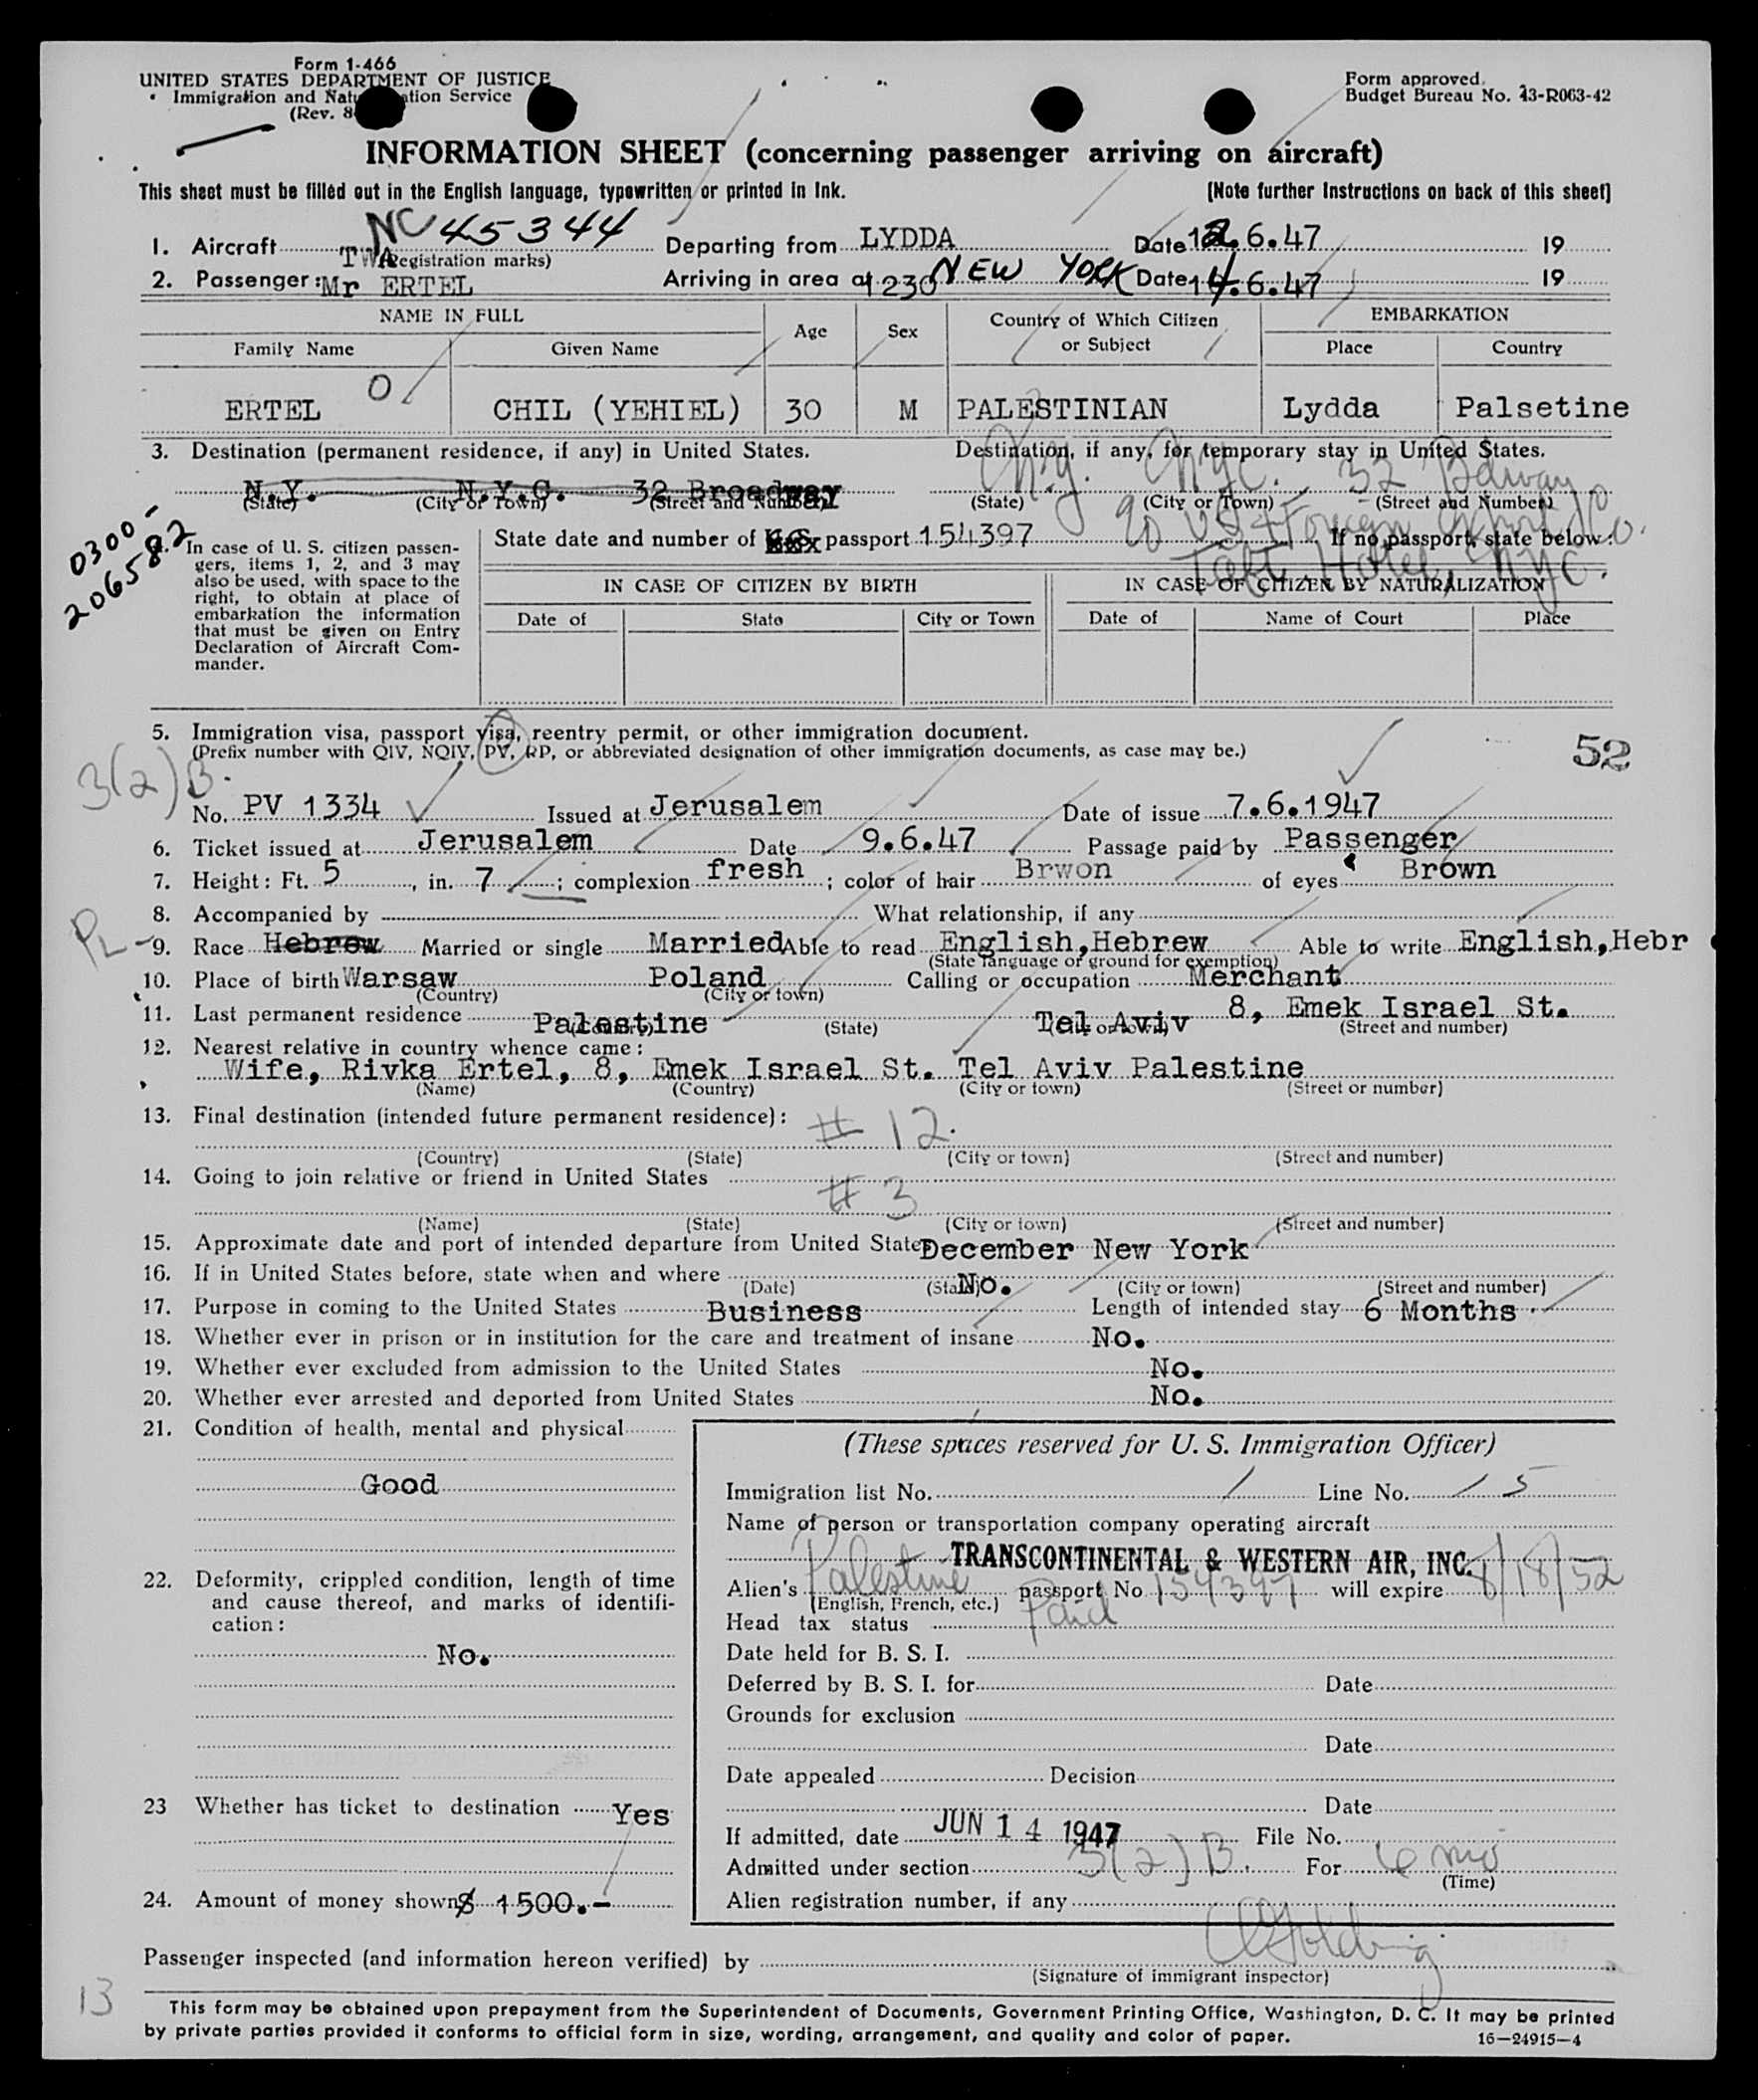 Form 1-466
UNITED STATES DEPARTMENT OF JUSTICE
Immigration and Naturalization Service
(Rev. 8
Form approved.
Budget Bureau No. 43-R063-42
INFORMATION SHEET (concerning passenger arriving on aircraft)
This sheet must be filled out in the English language, typewritten or printed in ink.
[Note further instructions on back of this sheet]
1. Aircraft NC 45344 Departing from LYDDA Date 12.6.47 19
TWA (Registration marks)
2. Passenger: Mr ERTEL Arriving in area at 1230 NEW YORK Date 14.6.47 19
NAME IN FULL Age Sex Country of Which Citizen or Subject EMBARKATION
Family Name Given Name Place Country
O
ERTEL CHIL (YEHIEL) 30 M PALESTINIAN Lydda Palsetine
3. Destination (permanent residence, if any) in United States. Destination, if any, for temporary stay in United States.
N.Y. N.Y.C. 32 Broadway N.Y. NYC. 32 Bdway
(State) (City or Town) (Street and Number) (State) (City or Town) (Street and Number)
0300-
206582
c/o US & Foreign Export Co.
Taft Hotel, NYC.
In case of U. S. citizen passen-
gers, items 1, 2, and 3 may
also be used, with space to the
right, to obtain at place of
embarkation the information
that must be given on Entry
Declaration of Aircraft Com-
mander.
State date and number of U.S. passport 154397 If no passport, state below:
IN CASE OF CITIZEN BY BIRTH IN CASE OF CITIZEN BY NATURALIZATION
Date of State City or Town Date of Name of Court Place
5. Immigration visa, passport visa, reentry permit, or other immigration document.
(Prefix number with QIV, NQIV, PV, RP, or abbreviated designation of other immigration documents, as case may be.)
52
3(2)B.
No. PV 1334 Issued at Jerusalem Date of issue 7.6.1947
6. Ticket issued at Jerusalem Date 9.6.47 Passage paid by Passenger
7. Height: Ft. 5, in. 7; complexion fresh; color of hair Brwon of eyes Brown
8. Accompanied by What relationship, if any
PL -
9. Race Hebrew Married or single Married Able to read English,Hebrew Able to write English,Hebr
(State language or ground for exemption)
10. Place of birth Warsaw Poland Calling or occupation Merchant
(Country) (City or town)
11. Last permanent residence Palestine Tel Aviv 8, Emek Israel St.
(Country) (State) (City or town) (Street and number)
12. Nearest relative in country whence came:
Wife, Rivka Ertel, 8, Emek Israel St. Tel Aviv Palestine
(Name) (Country) (City or town) (Street or number)
13. Final destination (intended future permanent residence): # 12.
(Country) (State) (City or town) (Street and number)
14. Going to join relative or friend in United States
# 3
(Name) (State) (City or town) (Street and number)
15. Approximate date and port of intended departure from United States December New York
16. If in United States before, state when and where No.
(Date) (State) (City or town) (Street and number)
17. Purpose in coming to the United States Business Length of intended stay 6 Months
18. Whether ever in prison or in institution for the care and treatment of insane No.
19. Whether ever excluded from admission to the United States No.
20. Whether ever arrested and deported from United States No.
21. Condition of health, mental and physical
Good
22. Deformity, crippled condition, length of time
and cause thereof, and marks of identifi-
cation:
No.
23 Whether has ticket to destination Yes
24. Amount of money shown $ 1500.-
(These spaces reserved for U. S. Immigration Officer)
Immigration list No. 1 Line No. 15
Name of person or transportation company operating aircraft
TRANSCONTINENTAL & WESTERN AIR, INC.
Alien's Palestine passport No. 154397 will expire 8/18/52
(English, French, etc.)
Head tax status Paid
Date held for B. S. I.
Deferred by B. S. I. for Date
Grounds for exclusion
Date
Date appealed Decision
Date
If admitted, date JUN 14 1947 File No.
Admitted under section 3(2)B. For 6 mo
(Time)
Alien registration number, if any
Passenger inspected (and information hereon verified) by
(Signature of immigrant inspector)
13
This form may be obtained upon prepayment from the Superintendent of Documents, Government Printing Office, Washington, D. C. It may be printed
by private parties provided it conforms to official form in size, wording, arrangement, and quality and color of paper. 16—24915-4